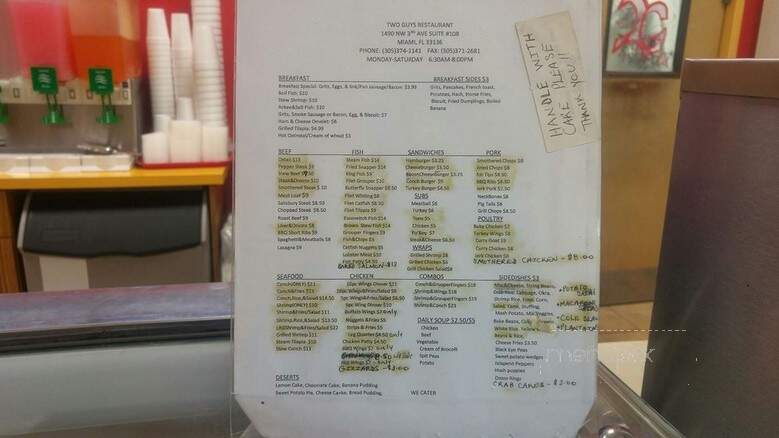 TWO GUYS RESTAURANT
1490 NW 3RD AVE SUITE #108
MIAMI, FL 33136
PHONE: (305)374-1141 FAX: (305)371-2681
MONDAY-SATURDAY 6:30AM-8:00PM
HANDLE WITH
CARE PLEASE
THANK YOU!!
BREAKFAST
Breakfast Special: Grits, Eggs, & link/Pan sausage/Bacon: $3.99
Boil Fish: $10
Stew Shrimp: $10
Ackee&Salt Fish: $10
Grits, Smoke Sausage or Bacon, Egg, & Biscuit: $7
Ham & Cheese Omelet: $6
Grilled Tilapia: $4.99
Hot Oatmeal/Cream of wheat $3
BREAKFAST SIDES $3
Grits, Pancakes, French toast,
Potatoes, Hash, Home Fries,
Biscuit, Fried Dumplings, Boiled
Banana
BEEF
Oxtail $13
Pepper Steak $9
Stew Beef
Steak&Onions $10
Smothered Steak $10
Meat Loaf $9
Salisbury Steak $8.50
Chopped Steak $8.50
Roast Beef $9
Liver&Onions $8
BBQ Short Ribs $9
Spaghetti&Meatballs $8
Lasagna $9
FISH
Steam Fish $14
Fried Snapper $14
King Fish $9
Fish Grouper $10
Butterfly Snapper $8.50
Fish Whiting $8
Fish Catfish $8.50
Fish Tilapia $9
Escoveitch Fish $14
Brown Stew Fish $14
Grouper Fingers $9
Fish&Chips $5
Catfish Nuggets $5
Lobster Meat $10
Fish Patty $4.50
BAKED SALMON-$13
SANDWICHES
Hamburger $3.25
Cheeseburger $3.50
BaconCheeseBurger $3.75
Conch Burger $9
Turkey Burger $4.50
SUBS
Meatball $6
Turkey $6
Tuna $5
Chicken $5
Turkey $7
Steak&Cheese $6.50
WRAPS
Grilled Shrimp $8
Grilled Chicken $6
Grill Chicken Salad
PORK
Smothered Chops $8
Fried Chops $8
Ear Tips $8.50
BBQ Ribs $8.50
Jerk Pork $7.50
NeckBones $8
Pig Tails $8
Grill Chops $8.50
POULTRY
Bake Chicken $7
Turkey Wings $8
Curry Goat $9
Curry Chicken $8
Jerk Chicken $8
SMOTHERED CHICKEN-$8.00
SEAFOOD
Conch(ONLY) $11
Conch&Fries $13
Conch,Rice,&Salad $14.50
Shrimp(ONLY) $10
Shrimp&Fries $11
Shrimp,Rice,&Salad $13.50
LRGShrimp&Fries/Salad $22
Grilled Shrimp $11
Steam Tilapia $10
Stew Conch $13
CHICKEN
10pc Wings Dinner $11
10pc Wings&Fries/Salad $8
5pc Wing&Fries/Salad $6.50
5pc Wings Dinner $10
Buffalo Wings $7 only
Nuggets & Fries $5
Strips & Fries $5
Leg Quarter $4.50 only
Chicken Patty $4.50
BBQ Wings $7 only
Hot Wings $7 only
GIZZARDS-$3.00
COMBOS
Conch&GrouperFingers $18
Shrimp&Wings $16
Shrimp&GrouperFingers $15
Shrimp&Conch $21
DAILY SOUP $2.50/$5
Chicken
Beef
Vegetable
Cream of Brocoli
Split Peas
Potato
SIDEDISHES $3
Mac&Cheese, String Beans,
Collard Greens, Cabbage, Okra,
Shrimp Rice, Fried, Corn,
Salad, Yams, Stuffing,
Mash Potato, Mix Veggies,
Bake Beans, Cole
White Rice, Yellow
Beans & Rice,
Cheese Fries $3.50
Black Eye Peas
Sweet potato wedges
Jalapeno Peppers
Hush puppies
Onion Rings
CRAB CAKES-$3.00
+POTATO
SALAD
+MACARONI
+COLE SLAW
+PLANTAIN
DESERTS
Lemon Cake, Chocolate Cake, Banana Pudding
Sweet Potato Pie, Cheese Cake, Bread Pudding,
WE CATER